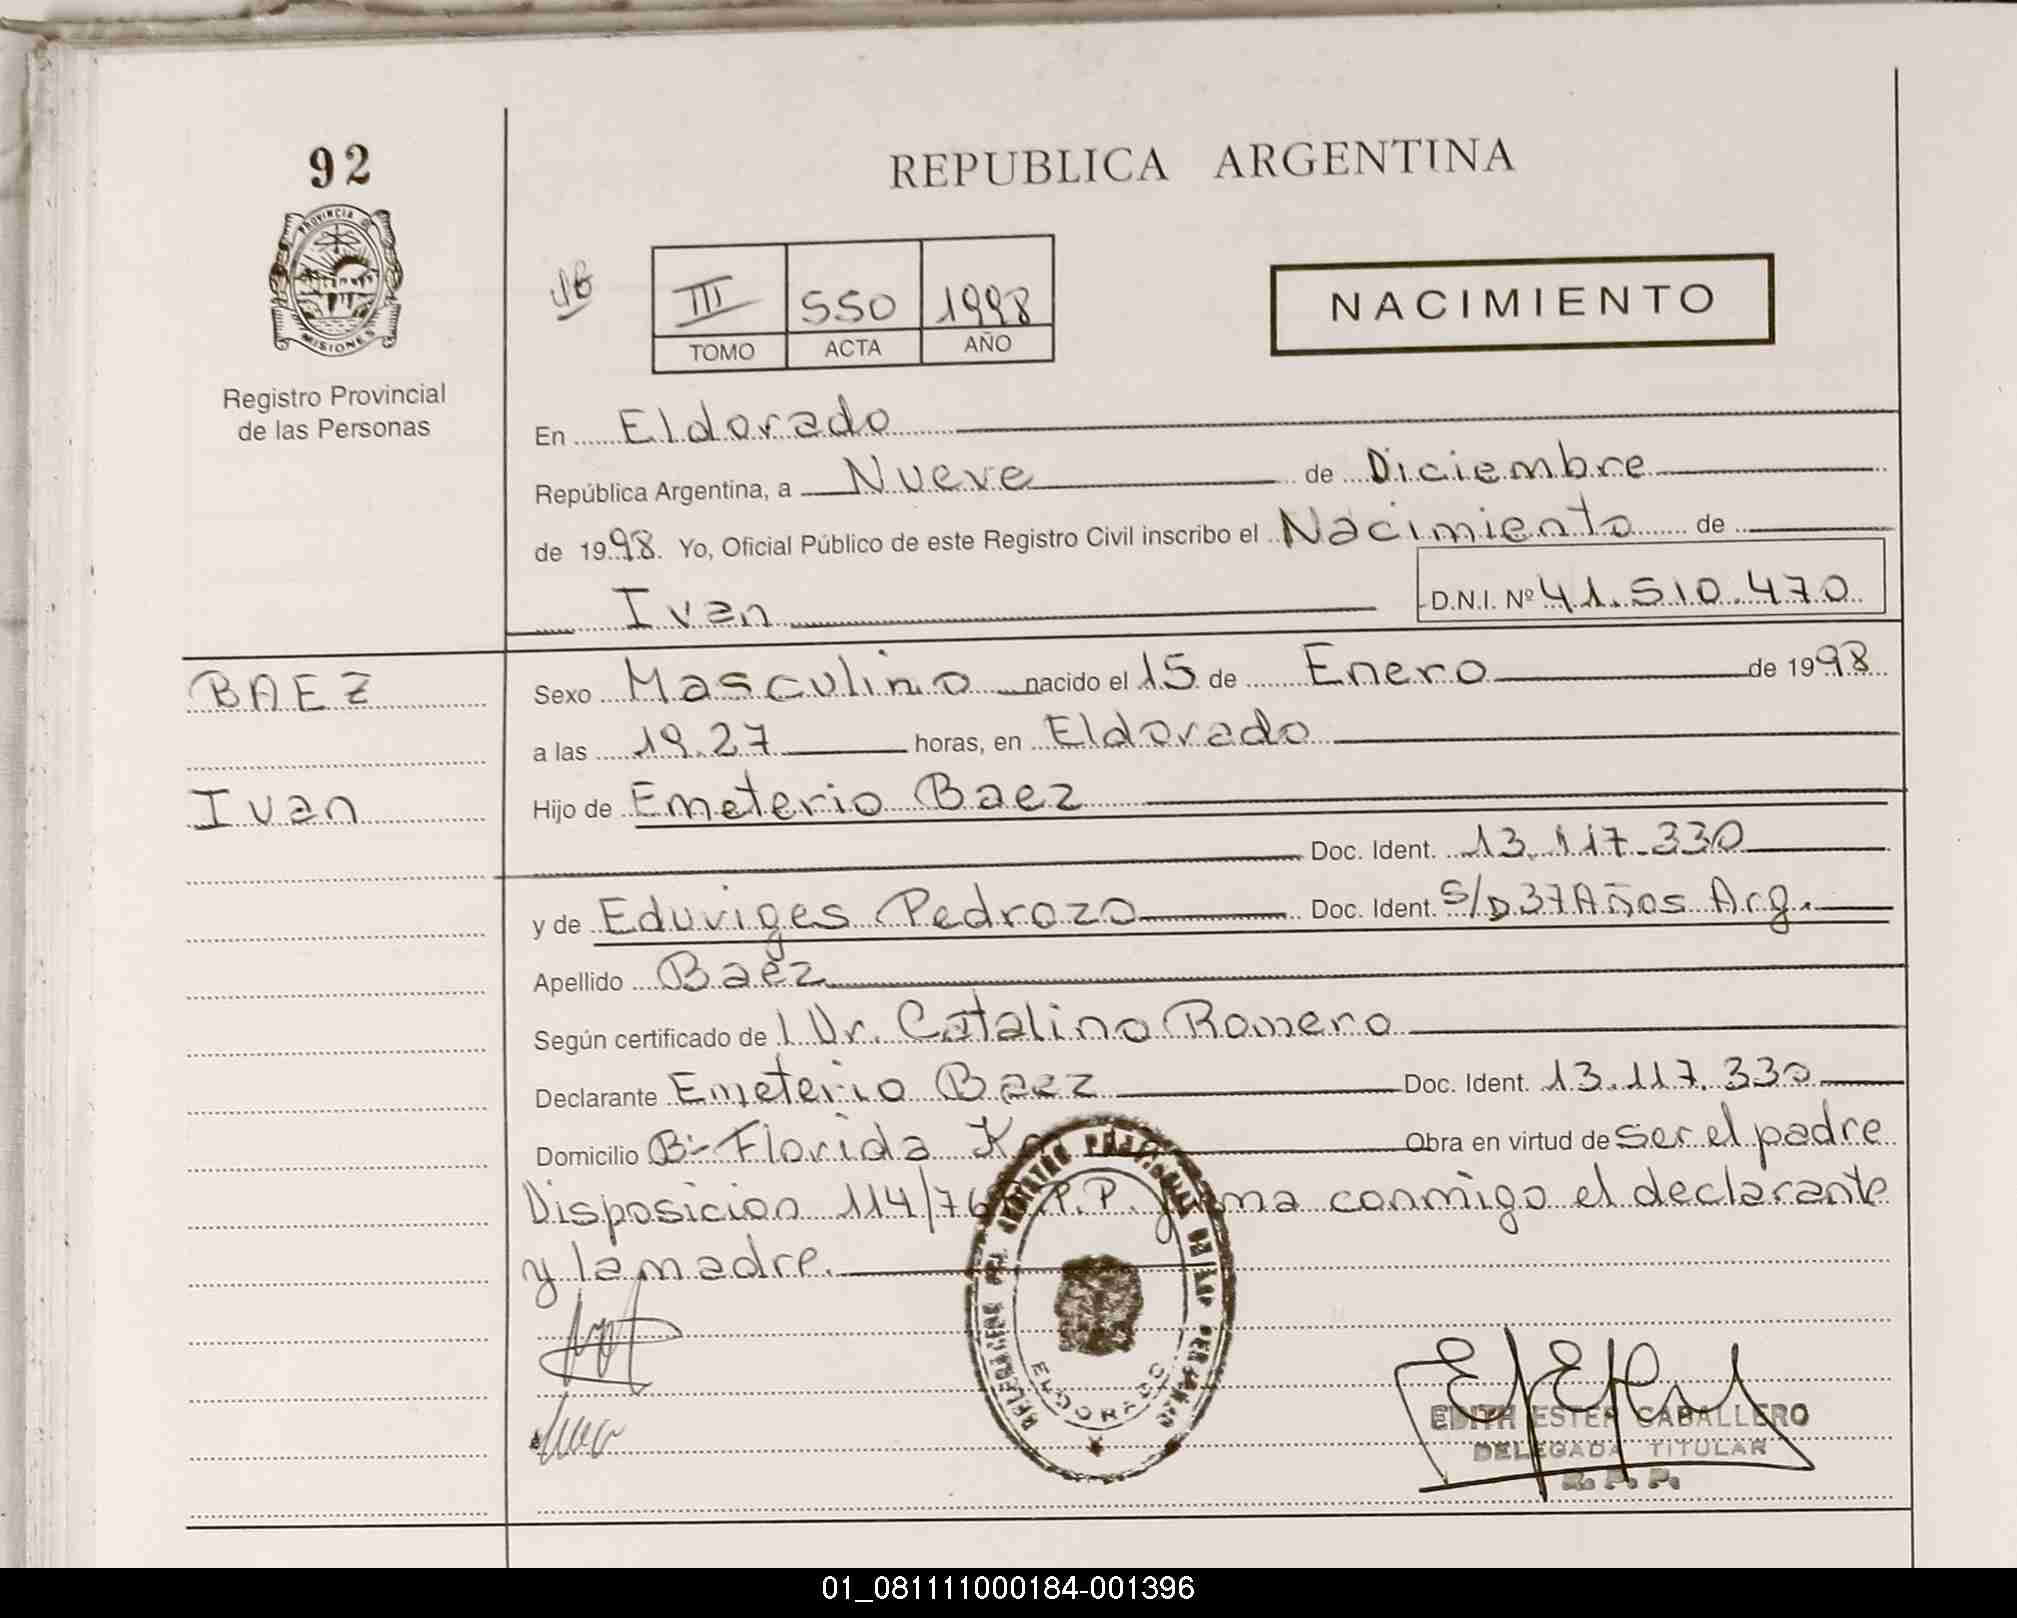 92
PROVINCIA D
MISIONES
Registro Provincial
de las Personas
REPUBLICA ARGENTINA
III 550 1998
TOMO ACTA AÑO
NACIMIENTO
En Eldorado
República Argentina, a Nueve de Diciembre
de 1998. Yo, Oficial Público de este Registro Civil inscribo el Nacimiento de
Ivan D.N.I. Nº 41.510.470
BAEZ
Ivan
Sexo Masculino nacido el 15 de Enero de 1998
a las 19.27 horas, en Eldorado
Hijo de Emeterio Baez
Doc. Ident. 13.117.330
y de Eduviges Pedrozo Doc. Ident. S/D 37 Años Arg.
Apellido Baez
Según certificado de l Dr. Catalino Romero
Declarante Emeterio Baez Doc. Ident. 13.117.330
Domicilio Bº Florida Obra en virtud de ser el padre
Disposicion 114/76 P.P. firma conmigo el declarante
y la madre.
ELDORADO
EDITH ESTER CABALLERO
DELEGADA TITULAR
R. P. P.
01_081111000184-001396